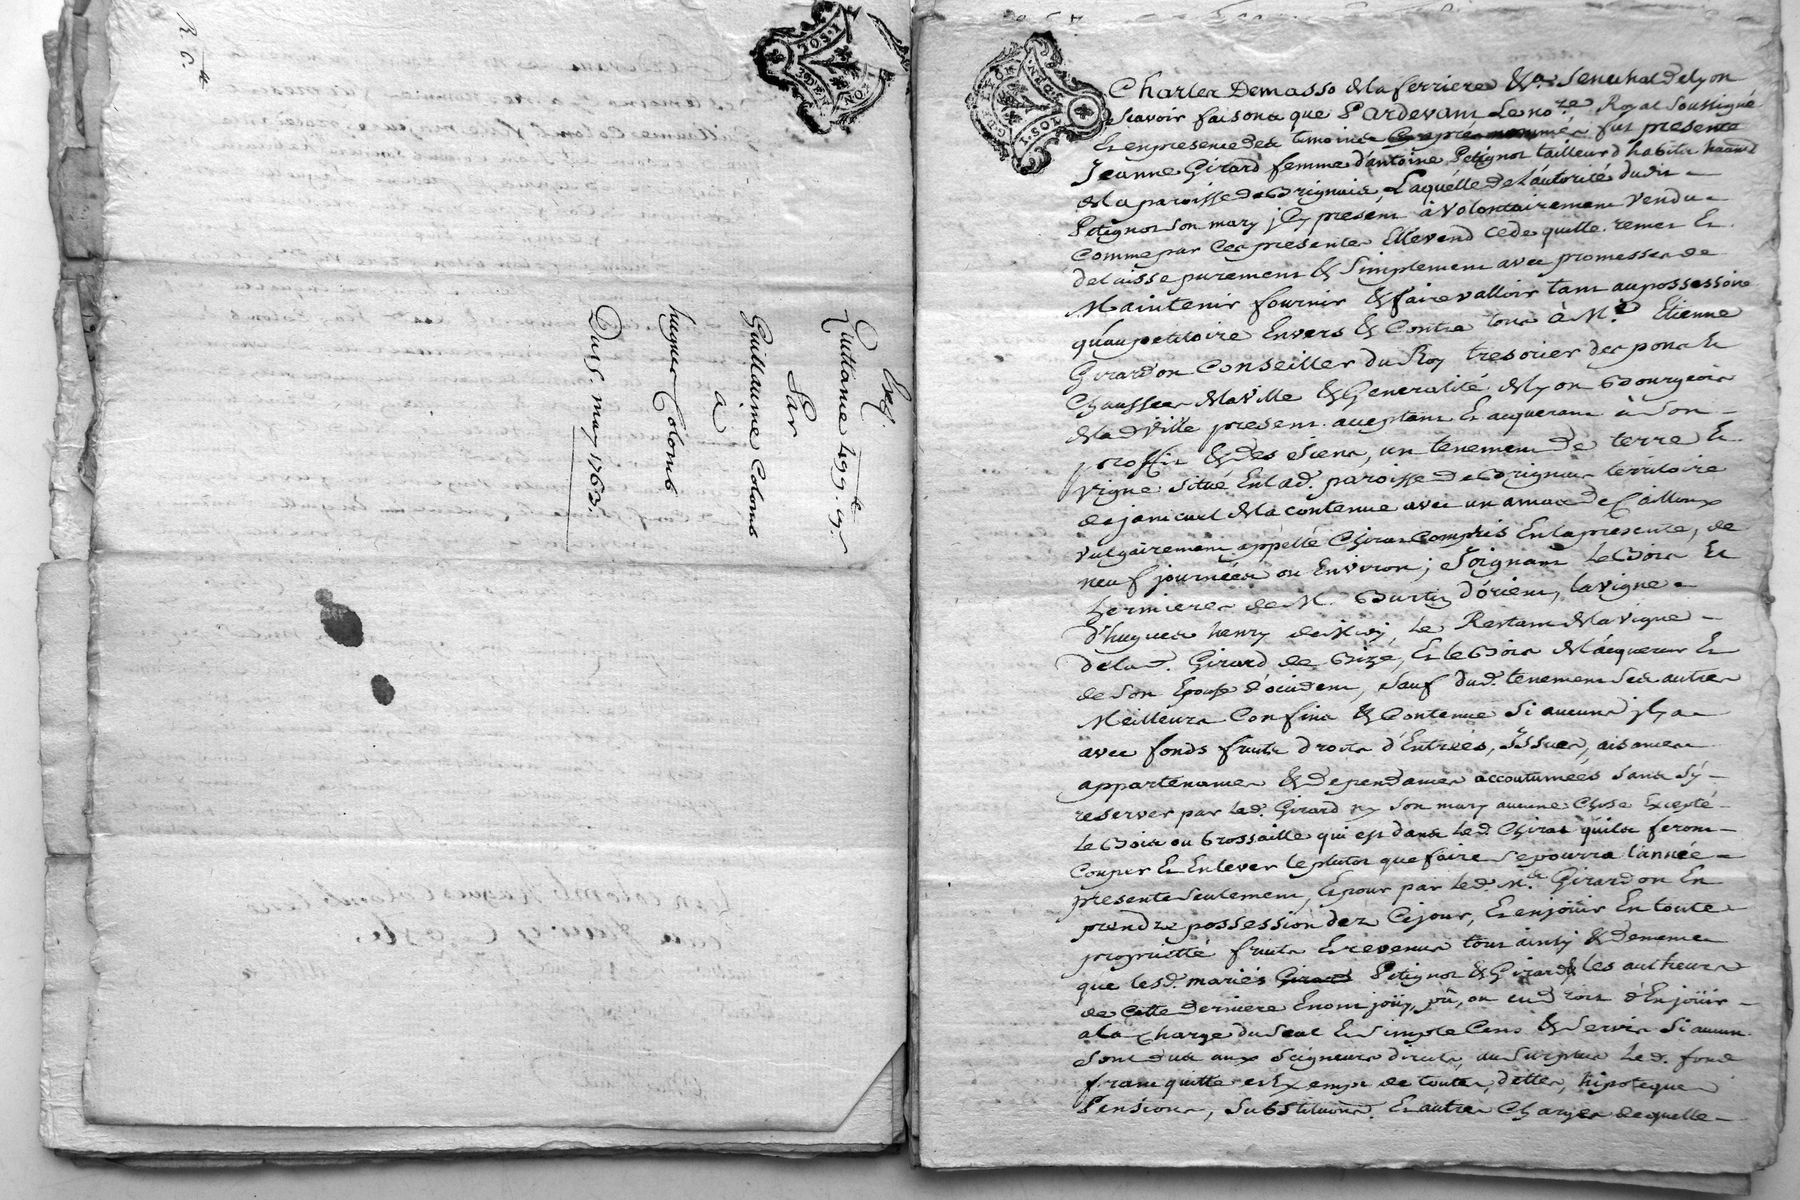 R. C.
Exp.
Quittance 499. 9.
Par
Guillaume Colomb
a
hugues Colomb
Du 5. may 1763.
Charles Demasso de la ferriere &a. Senechal de Lyon
Scavoir faisons que Pardevant Le nore. Royal Soussigné
Et en presence des temoins Cy après nommés fut presente
Jeanne Girard femme d'antoine Petignot tailleur d'habits
de la paroisse de Brignais Laquelle de L'autorité dudit
Petignot Son mary jcy present à volontairement vendu
Comme par Ces presentes Elle vend cede quitte remet Et
delaisse purement & Simplement avec promesse de
Maintenir fournir & faire valloir tant au possessoire
qu'au petitoire Envers & Contre tous à Mr. Etienne
Girardon Conseiller du Roy tresorier des ponts Et
Chaussées de la Ville & Generalité de Lyon Bourgeois
de lad. Ville present acceptant Et acquerant à Son
proffit & des siens, un tenement de terre Et
vigne Situé En lad. paroisse de Brignais territoire
de janicul de la contenue avec un amas de Cailloux
vulgairement appellé Chirat Compris En la presente, de
neuf journées ou Environ; Joignant Le Bois Et
hermieres de Mr. Burtin d'orient, la vigne
d'hugues henry de, Le Restant de la vigne
de lad. Girard de Bize, Et le Bois de L'acquereur Et
de Son Epouse d'occident, Sauf dud. tenement Ses autres
Meilleurs Confins & Contenue Si aucuns jl y a
avec fonds fruits droits d'Entrées, Issues, aisances
appartenances & dependances accoutumées Sans Sy
reserver par lad. Girard ny Son mary aucune Chose Excepté
Le Bois ou Brossaille qui est dans Led. Chirat quils feront
Couper Et Enlever le plutot que faire Se pourra l'année
presente Seulement, Et pour par Led. Mr. Girardon En
prendre possession dez Cejour, Et en jöuir En toute
proprietté fruits Et revenus tout ainsy & de meme
que lesd. mariés Girard Petignot & Girard & les autheurs
de Cette derniere En ont joüy, pû, ou eu droit d'En joüir
a la Charge du Seul Et Simple Cens & Servis Si aucun
Sont dus aux Seigneurs directs, au Surplus Led. fond
franc quitte et Exempt de toutes dettes, hipoteques
Pensions, Substitutions Et autres Charges de quelle